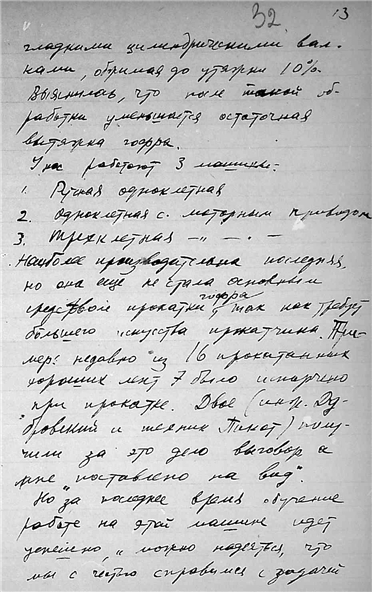 32 13
гладкими цилиндрическими вал-
ками, обжимая до утяжки 10%.
Выяснилось, что после такой об-
работки уменьшается остаточная
вытяжка гофра.
У нас работают 3 машины:
1. Ручная одноклетная
2. Одноклетная с моторным приводом
3. Трехклетная —"— . —
Наиболее производительна последняя,
но она ещё не стала основным
средством прокатки гофра, так как требует
большего искусства прокатчика. При-
мер: недавно из 16 прокатанных
хороших лент 7 было испорчено
при прокатке. Двое (инж. Ду-
бровский и техник Пинот) полу-
чили за это дело выговор а
мне "поставлено на вид".
Но за последнее время обучение
работе на этой машине идет
успешно, и можно надеяться, что
мы с честью справимся с задачей